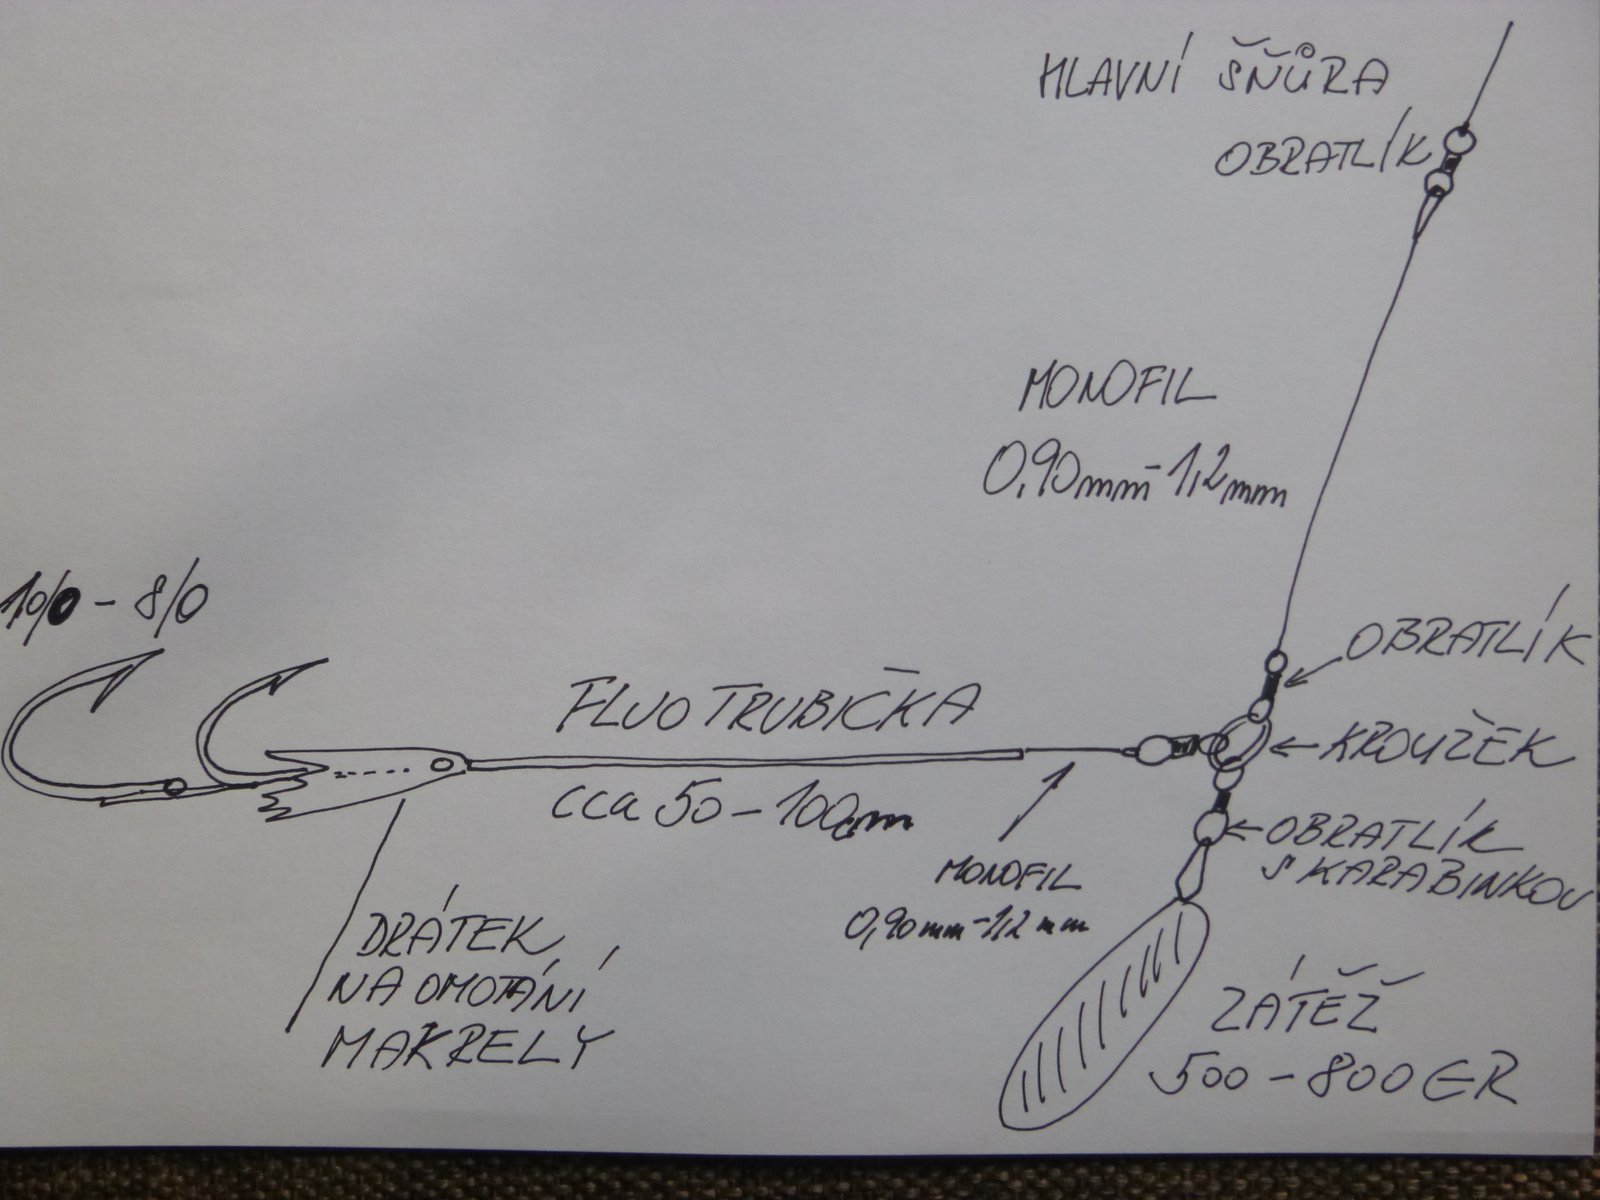 HLAVNÍ ŠŇŮRA
OBRATLÍK
MONOFIL
0,90mm-1,2mm
10/0 - 8/0
OBRATLÍK
FLUO TRUBIČKA
KROUŽEK
cca 50-100cm
OBRATLÍK
S KARABINKOU
MONOFIL
0,90mm-1,2mm
DRÁTEK
NA OMOTÁNÍ
MAKRELY
ZÁTĚŽ
500-800 GR